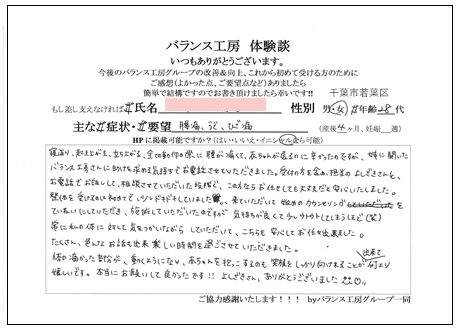 バランス工房 体験談
いつもありがとうございます。
今後のバランス工房グループの改善＆向上、これから初めて受ける方のために
ご感想（よかった点、ご要望点など）ありましたら
簡単で結構ですのでお書き頂けましたら幸いです!!
千葉市若葉区
もし差し支えなければ お氏名 性別 男・女 お年齢 28代
主なお症状・ご要望 腰痛、うで、ひざ痛 （産後4ヶ月、妊娠 週）
HPに掲載可能ですか？（はい・いいえ・イニシャルなら可能）
寝返り、起き上がる、立ち上がる、全ての動作の際に腰が痛くて、赤ちゃんが居るのに辛かったですが、姉に聞いた
バランス工房さんに助けを求める気持ちでお電話させていただきました。受付の方を含め、担当のよしざきさんと、
お電話でお話しして、相談させていただいた段階で、この方ならお任せしても大丈夫だと安心しました。
整体を受けるに初めてで、少しドキドキしていましたが、来ていただいて始めのカウンセリング
ていねいにしていただき、施術していただいたのですが、気持ちが良くてウトウトしてしまうほど（笑）
常に私の体に対して気をつかいながらしていただいて、こちらも安心してお任せ出来ました。
たくさん、色んなお話も出来楽しい時間を過ごさせていただきました。
体の痛かった部分が、動くようになり、赤ちゃんを抱っこするのも笑顔をしっかり向けれることが出来て何より
嬉しいです。本当にお願いして良かったです!! よしざきさん、ありがとうございました
ご協力感謝いたします！！！ byバランス工房グループ一同